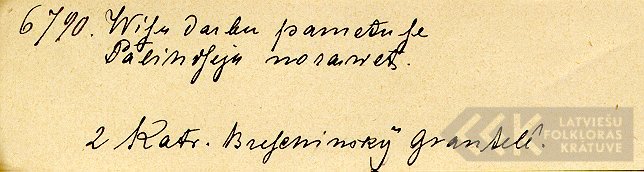 6790. Wisu darbu pametuse
Palihdseju norawet.
2 Katr. Breschinsky Grantelē.
LATVIEŠU
FOLKLORAS
KRĀTUVE